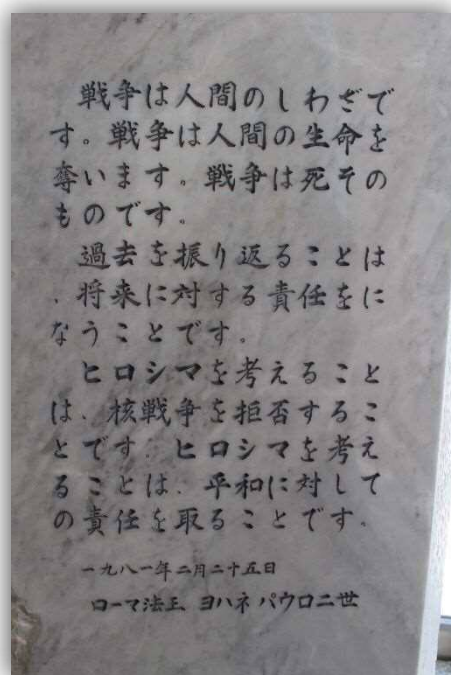 戦争は人間のしわざで
す。戦争は人間の生命を
奪います。戦争は死その
ものです。
過去を振り返ることは
、将来に対する責任をに
なうことです。
ヒロシマを考えること
は、核戦争を拒否するこ
とです。ヒロシマを考え
ることは、平和に対して
の責任を取ることです。
一九八一年二月二十五日
ローマ法王 ヨハネ パウロ二世